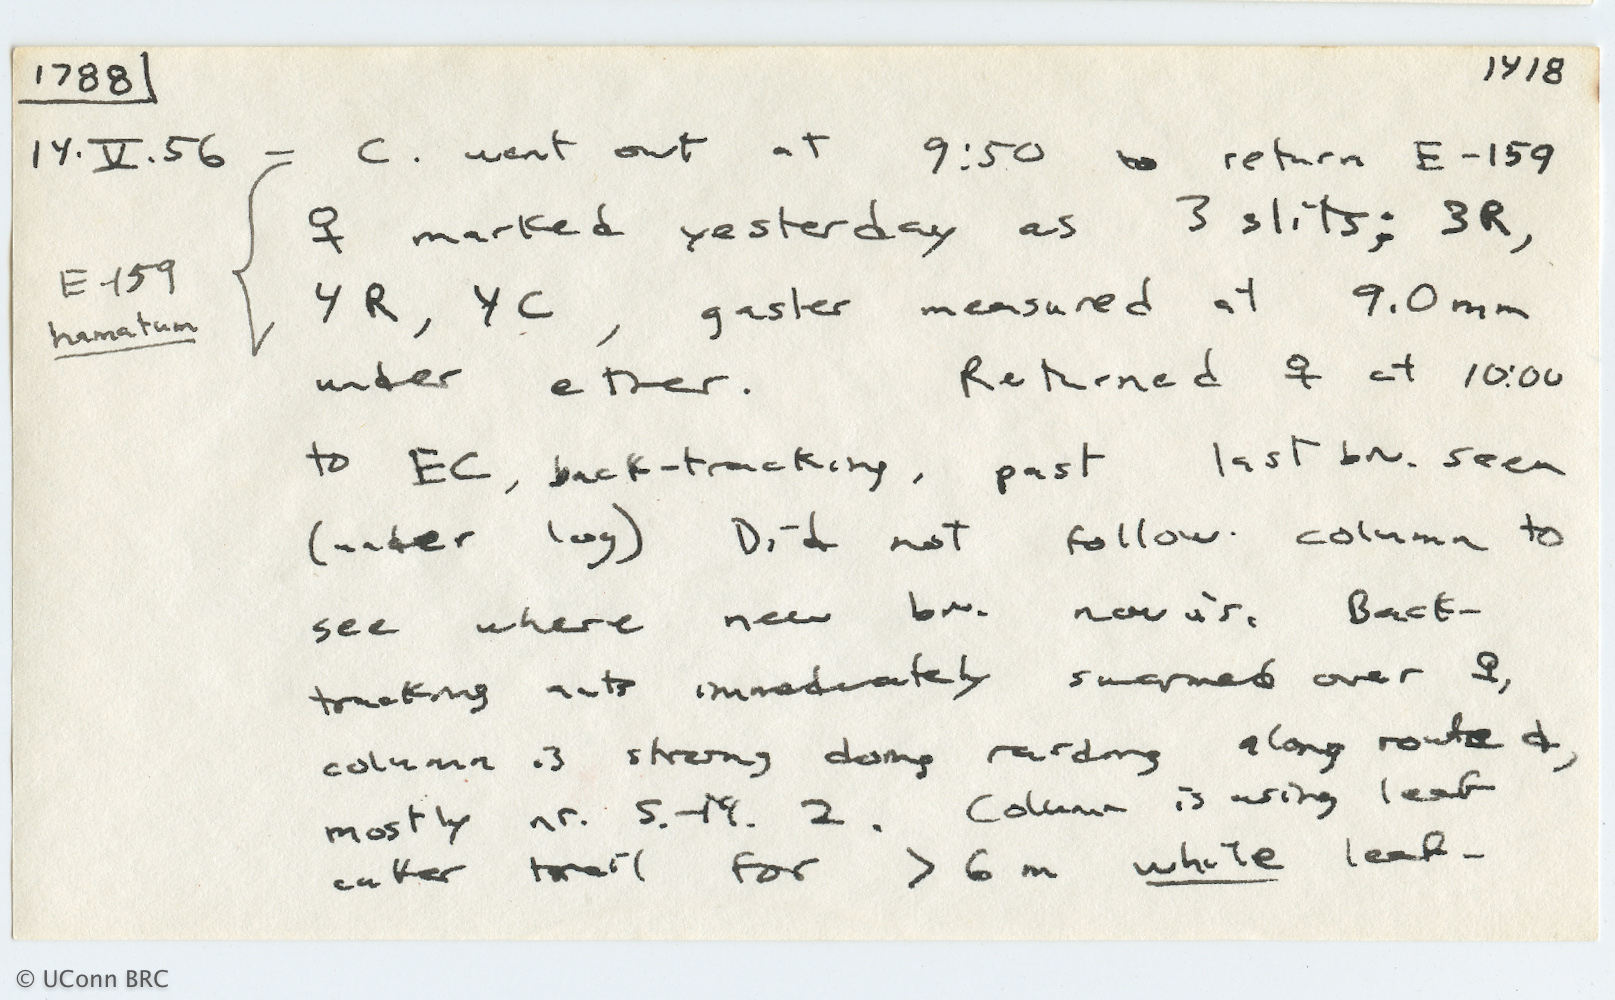 1788 1418
14.V.56 = C. went out at 9:50 to return E-159
♀ marked yesterday as 3 slits; 3R,
E-159
hamatum
4R, 4C, gaster measured at 9.0mm
under ether. Returned ♀ at 10:00
to EC, back-tracking, past last biv. seen
(under log) Did not follow column to
see where new biv. now is. Back-
tracking ants immediately swarmed over ♀,
column is strong doing raiding along route &,
mostly nr. 2. Column is using leaf
cutter trail for > 6 m while leaf-
© UConn BRC